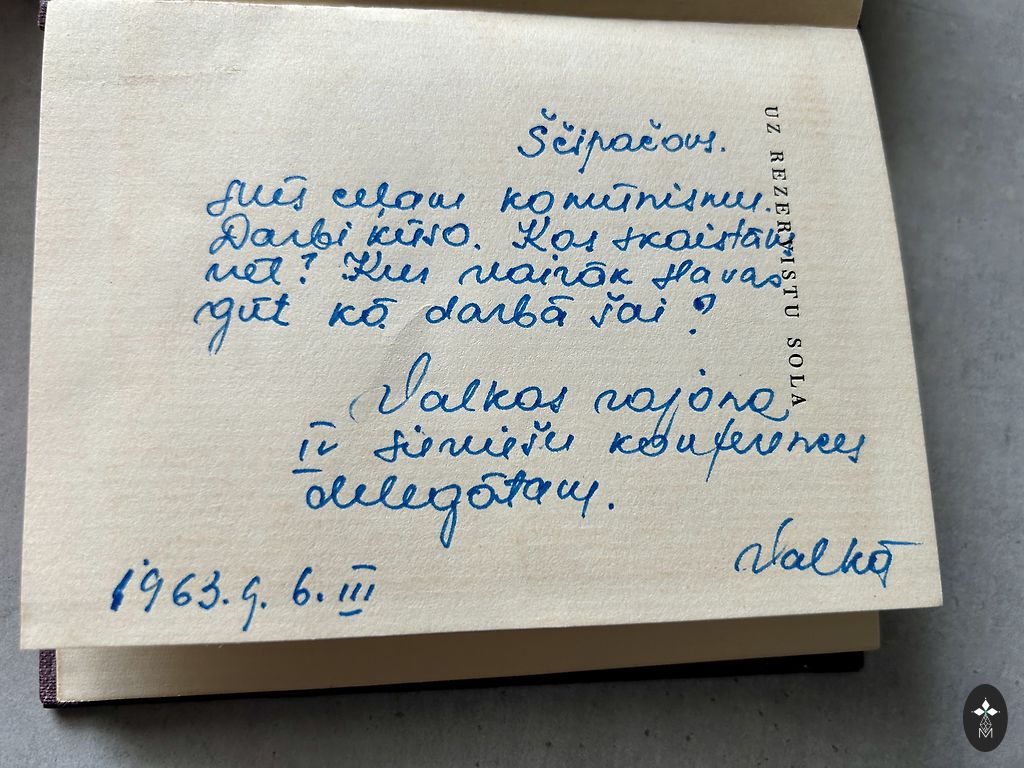 Ščipačovs.
Mēs ceļam komūnismu.
Darbi kūso. Kas skaistāks
vēl? Kur vairāk slavas
gūt kā darbā šai?
Valkas rajona
IV sieviešu konferences
delegātam.
Valkā
1963.g. 6. III
UZ REZERVISTU SOLA